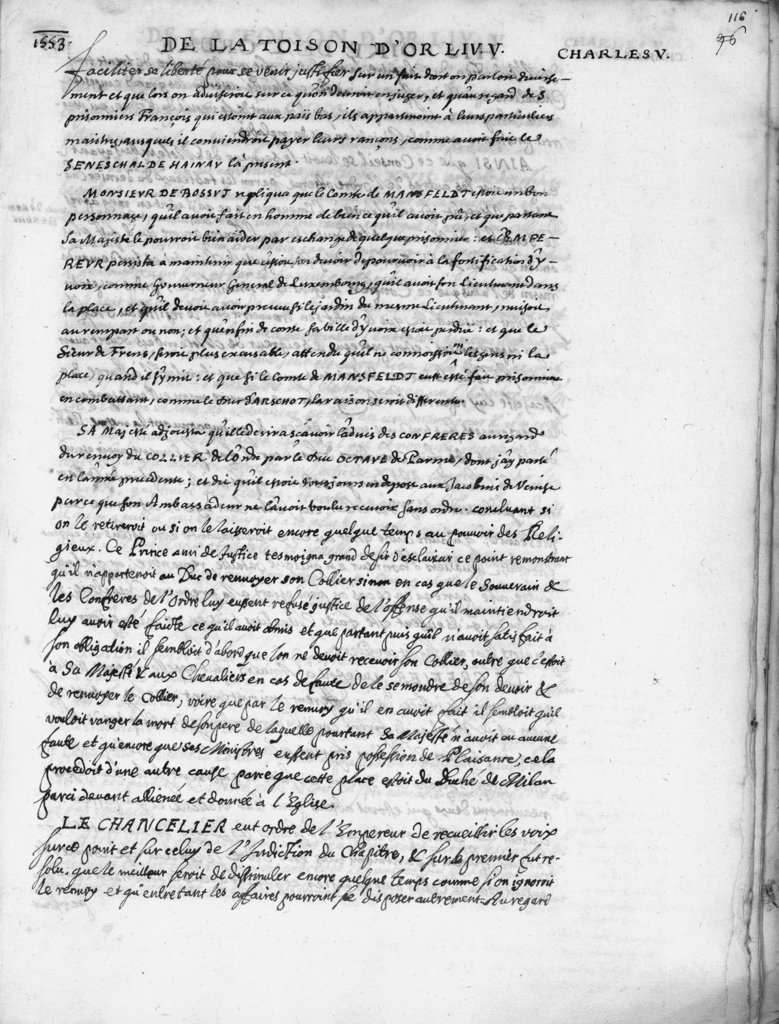 116
96
1553. DE LA TOISON D'OR LIV. V. CHARLES V.
faciliter sa liberté pour se venir justifier sur un fait dont on parloit diverse-
ment et que lors on adviseroit sur ce qu'on devroit en juger, et qu'au regard des
prisonniers François qui estoint aux païs bas, ils appartenoint à leurs particuliers
maistres, ausquels il conviendroit payer leurs rançons, comme avoit fait le
SENESCHAL DE HAINAV là présent.
MONSIEVR DE BOSSVT repliqua que le Comte de MANSFELDT estoit un bon
personnage, qu'il avoit fait en homme de bien ce qu'il avoit pû, et que partant
sa Majesté le pourroit bien aider par eschange de quelque prisonnier: et l'EMPE-
REVR persista a maintenir que c'estoit son devoir de pourveoir à la fortification d'y-
voix, comme Gouverneur General de Luxembourg, qu'il avoit son Lieutenant dans
la place, et qu'il devoit avoir preveu si le jardin du mesme Lieutenant, nuisoit
au rempart ou non; et qu'en fin de conte sa ville d'yvoix estoit perdüe: et que le
Sieur de Frens, seroit plus excusable, attendu qu'il ne connoissoit ny les gens ni la
place, quand il s'y mit: et que si le Comte de MANSFELDT eut esté fait prisonnier
en combattant, comme le Duc d'ARSCHOT, la raison seroit differente.
SA Majesté adjousta qu'elle desiroit sçavoir l'aduis des CONFRERES au regard
du renvoy du COLLIER de l'Ordre par le Duc OCTAVE de Parme, dont j'ay parlé
en l'année precedente; et dit qu'il estoit tousjours en depost aux Jacobins de Venise
parce que son Ambassadeur ne l'avoit voulu recevoir sans ordre. concluant si
on le retireroit ou si on le laisseroit encore quelque temps au pouvoir des Reli-
gieux. Ce Prince ami de Justice tesmoigna grand desir d'esclaircir ce point remonstrant
qu'il n'appartenoit au Duc de renvoyer son Collier sinon en cas que le Souverain &
les Confreres de l'Ordre luy eussent refusé justice de l'offense qu'il maintiendroit
luy avoir esté faicte ce qu'il avoit obmis et que partant puis qu'il n'avoit satisfait à
son obligation il sembloit d'abord que l'on ne devoit recevoir son Collier, outre que c'estoit
à Sa Majesté & aux Chevaliers en cas de faute de le semondre de son devoir &
de renvoyer le Collier, voire que par le renvoy qu'il en avoit fait il sembloit qu'il
vouloit vanger la mort de son pere de laquelle pourtant Sa Majesté n'avoit eu aucune
faute et qu'encore que ses Ministres eussent pris possession de Plaisance, cela
procedoit d'une autre cause, parce que cette place estoit du Duché de Milan
parci devant alienée et donnée à l'Eglise.
LE CHANCELIER eut ordre de l'Empereur de recueillir les voix
sur ce point et sur celuy de l'Indiction du Chapitre, & sur le premier fut re-
solu, que le meilleur seroit de dissimuler encore quelque temps comme si on ignoroit
le renvoy et qu'entretant les affaires pourroint se disposer autrement. Au regard